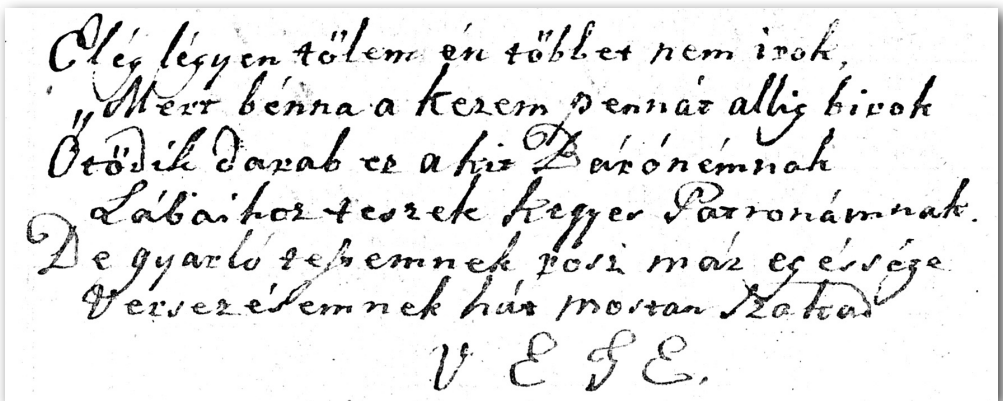 Elég légyen tőlem én többet nem irok,
„Mert bénna a kezem pennát allig birok
Ötödik darab ez a kit Bárónémnak
Lábaihoz teszek kegyes Patronámnak.
De gyarló teſtemnek rosz már egéssége
Versezésemnek hát mostan Szakad
VEGE.